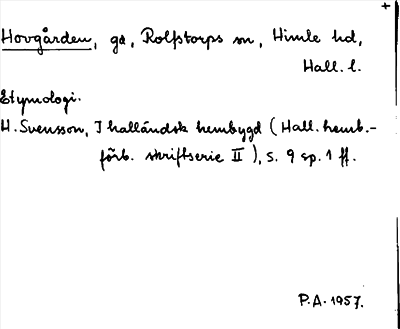 Hovgården, gd, Rolfstorps sn, Himle hd,
Hall. l.
Etymologi.
H. Svensson, I halländsk hembygd (Hall. hemb.-
förb. skriftserie II), s. 9 sp. 1 ff.
P.A. 1957.